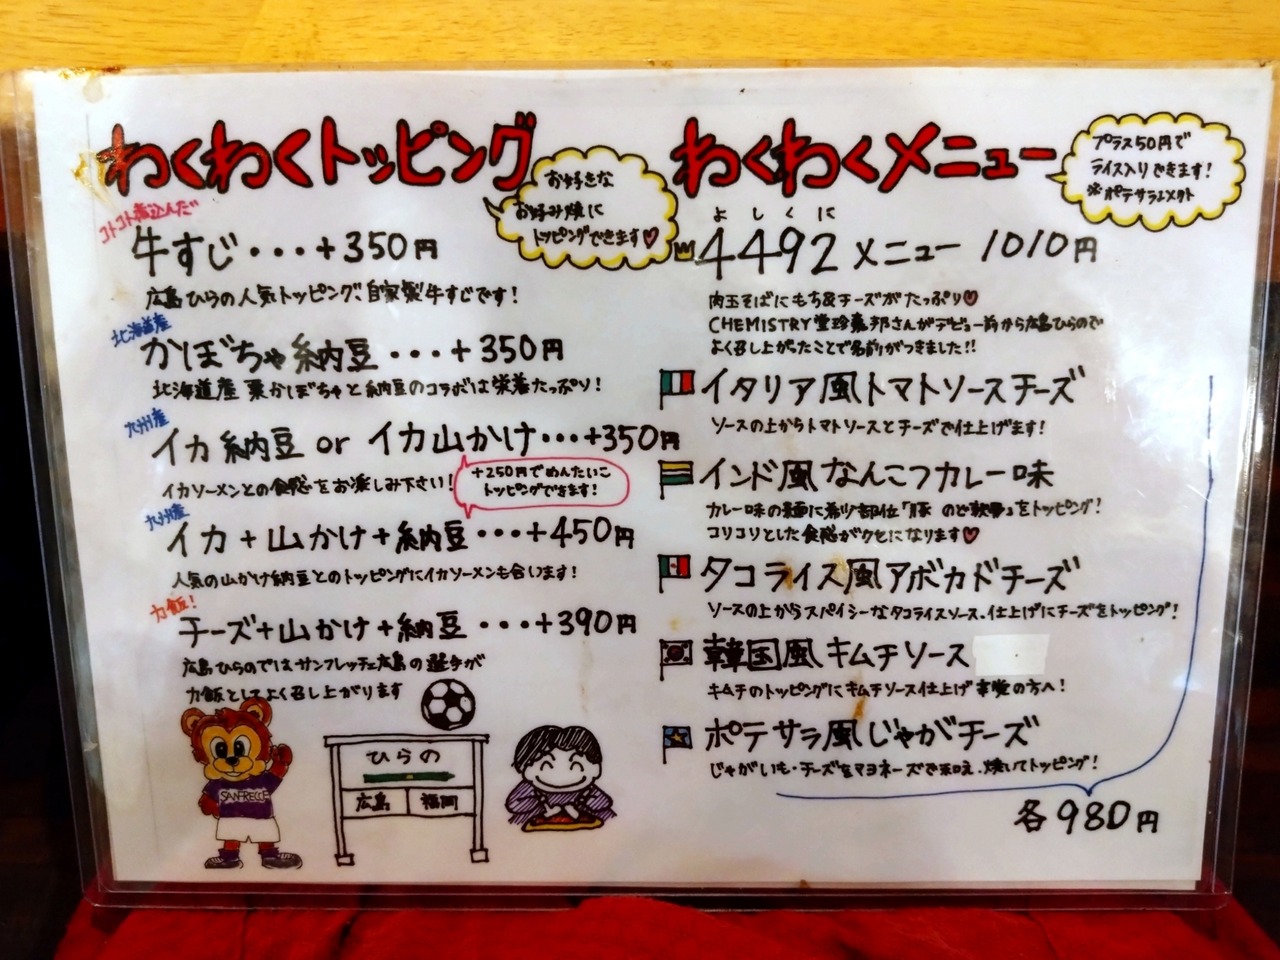 わくわくトッピング
お好きな
お好み焼に
トッピングできます♡
コトコト煮込んだ
牛すじ・・・+350円
広島ひらの人気トッピング、自家製牛すじです!
北海道産
かぼちゃ納豆・・・+350円
北海道産 栗かぼちゃと納豆のコラボは栄養たっぷり!
九州産
イカ納豆 or イカ山かけ・・・+350円
イカソーメンとの食感をお楽しみ下さい!
+250円でめんたいこ
トッピングできます!
九州産
イカ+山かけ+納豆・・・+450円
人気の山かけ納豆とのトッピングにイカソーメンも合います!
力飯!
チーズ+山かけ+納豆・・・+390円
広島ひらのではサンフレッチェ広島の選手が
力飯としてよく召し上がります
SANFRECCE
ひらの
広島 福岡
わくわくメニュー
プラス50円で
ライス入りできます!
※ポテサラ以外
よしくに
4492メニュー 1010円
肉玉そばにもち&チーズがたっぷり♡
CHEMISTRY堂珍嘉邦さんがデビュー前から広島ひらので
よく召し上がったことで名前がつきました!!
イタリア風トマトソースチーズ
ソースの上からトマトソースとチーズで仕上げます!
インド風なんこつカレー味
カレー味の麺に希少部位「豚 のど軟骨」をトッピング!
コリコリとした食感がクセになります♡
タコライス風アボカドチーズ
ソースの上からスパイシーなタコライスソース、仕上げにチーズをトッピング!
韓国風キムチソース
キムチのトッピングにキムチソース仕上げ 辛党の方へ!
ポテサラ風じゃがチーズ
じゃがいも・チーズをマヨネーズで和え、焼いてトッピング!
各980円